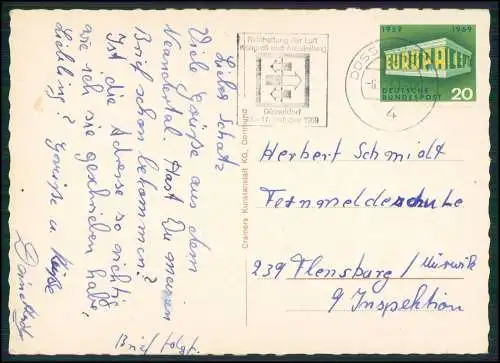 Lieber Schatz
Viele Grüße aus dem
Neandertal. Hast Du meinen
Brief schon bekommen?
Ist die Adresse so richtig
wie ich sie geschrieben habe,
Liebling? Grüße u. Küsse
Brief folgt.
Cramers Kunstanstalt KG, Dortmund
Reinhaltung der Luft
Kongreß und Ausstellung
Düsseldorf
1969
1959 1969
EUROPA CEPT
DEUTSCHE
BUNDESPOST
20
4
Herbert Schmidt
Fernmeldeschule
239 Flensburg / Mürwik
9 Inspektion